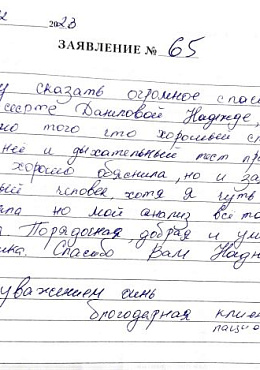 2 2023
ЗАЯВЛЕНИЕ № 65
у сказать огромное спас
Даниловой Надежде,
но того что хорошый с
ней и дыхательный тест пр
хорошо обяснила, но и за
ый человек, хотя я чуть
но мой анализ всё та
Порядочная, добрая и ум
ка. Спасибо Вам Надя
уважением
благодарная клие
пацие